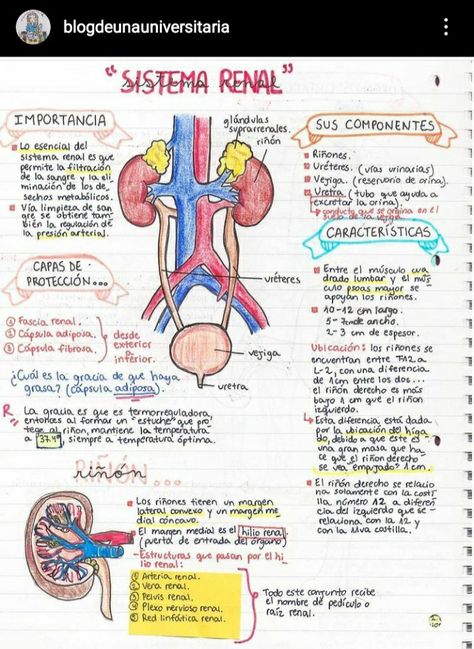 blogdeunauniversitaria
"SISTEMA RENAL"
sistema renal
IMPORTANCIA
Lo esencial del
sistema renal es que
permite la filtración
de la sangre y la eli
minación de los de_
sechos metabólicos.
Y la limpieza de san
gre se obtiene tam_
bién la regulación de
la presión arterial.
CAPAS DE
PROTECCIÓN...
1 Fascia renal.
2 Cápsula adiposa.
3 Cápsula fibrosa.
desde
exterior
a
inferior.
¿Cuál es la gracia de que haya
grasa? (cápsula adiposa)
R La gracia es que es termorreguladora,
entonces al formar un "estuche" que pro
tege al riñon, mantiene la temperatura
a 37.4°, siempre a temperatura óptima.
glándulas
suprarrenales.
riñón
uréteres
vejiga
uretra
SUS COMPONENTES
Riñones.
Uréteres. (vías urinarias)
Vejiga. (reservorio de orina).
Uretra (tubo que ayuda a
excretar la orina).
conducto que se origina en el
suelo de la vejiga
CARACTERÍSTICAS
Entre el músculo cua
drado lumbar y el mús
culo psoas mayor se
apoyan los riñones.
10-12 cm largo.
5-7 cm de ancho.
2-3 cm de espesor.
Ubicación: los riñones se
encuentran entre T12 a
L-2, con una diferencia
de 1cm entre los dos...
el riñón derecho es más
bajo 1 cm que el riñón
izquierdo.
Esta diferencia está dada
por la ubicación del híga
do, debido a que este es
una gran masa que ha_
ce que el riñon derecho
se vea empujado 1 cm.
El riñón derecho se relacio
na solamente con la costi
lla número 12 a diferen
cia del izquierdo que se
relaciona con la 12 y
con la 11va costilla.
RIÑÓN...
riñón
Los riñones tienen un margen
lateral convexo y un margen me
dial cóncavo.
El margen medial es el hilio renal.
(puerta de entrada del órgano)
-Estructuras que pasan por el hi
lio renal:
1 Arteria renal.
2 Vena renal.
3 Pelvis renal.
4 Plexo nervioso renal.
5 Red linfática renal.
Todo este conjunto recibe
el nombre de pedículo o
raíz renal.